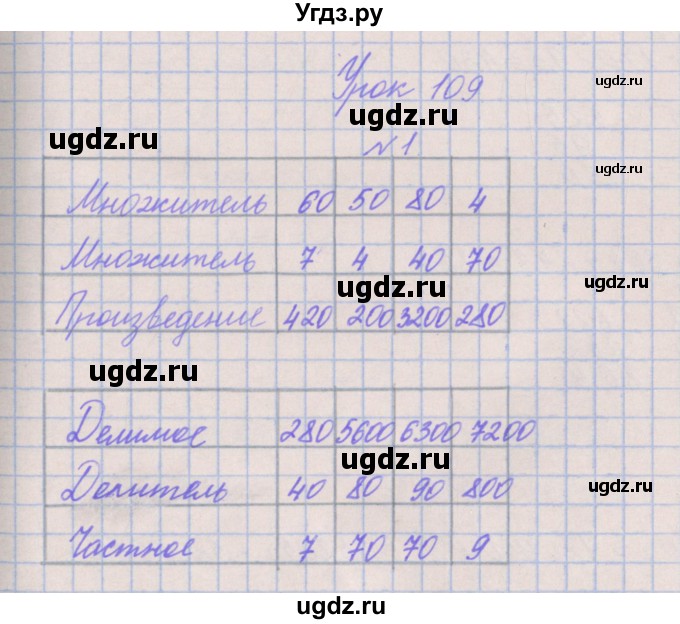 Угдз.ру
Урок 109
ugdz.ru
ugdz.ru
ugdz.ru
№1
ugdz.ru
Множитель 60 50 80 4
Множитель 7 4 40 70
ugdz.ru
ugdz.ru
Произведение 420 200 3200 280
ugdz.ru
Делимое 280 5600 6300 7200
ugdz.ru
Делитель 40 80 90 800
ugdz.ru
Частное 7 70 70 9
ugdz.ru